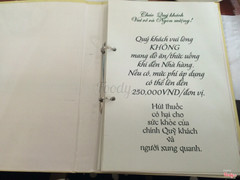 Chúc Quý khách
Vui vẻ và Ngon miệng!
Quý khách vui lòng
KHÔNG
mang đồ ăn/thức uống
khi đến Nhà hàng.
Nếu có, mức phí áp dụng
có thể lên đến
250,000VND/đơn vị.
Hút thuốc
có hại cho
sức khỏe của
chính Quý khách
và
người xung quanh.
Foody